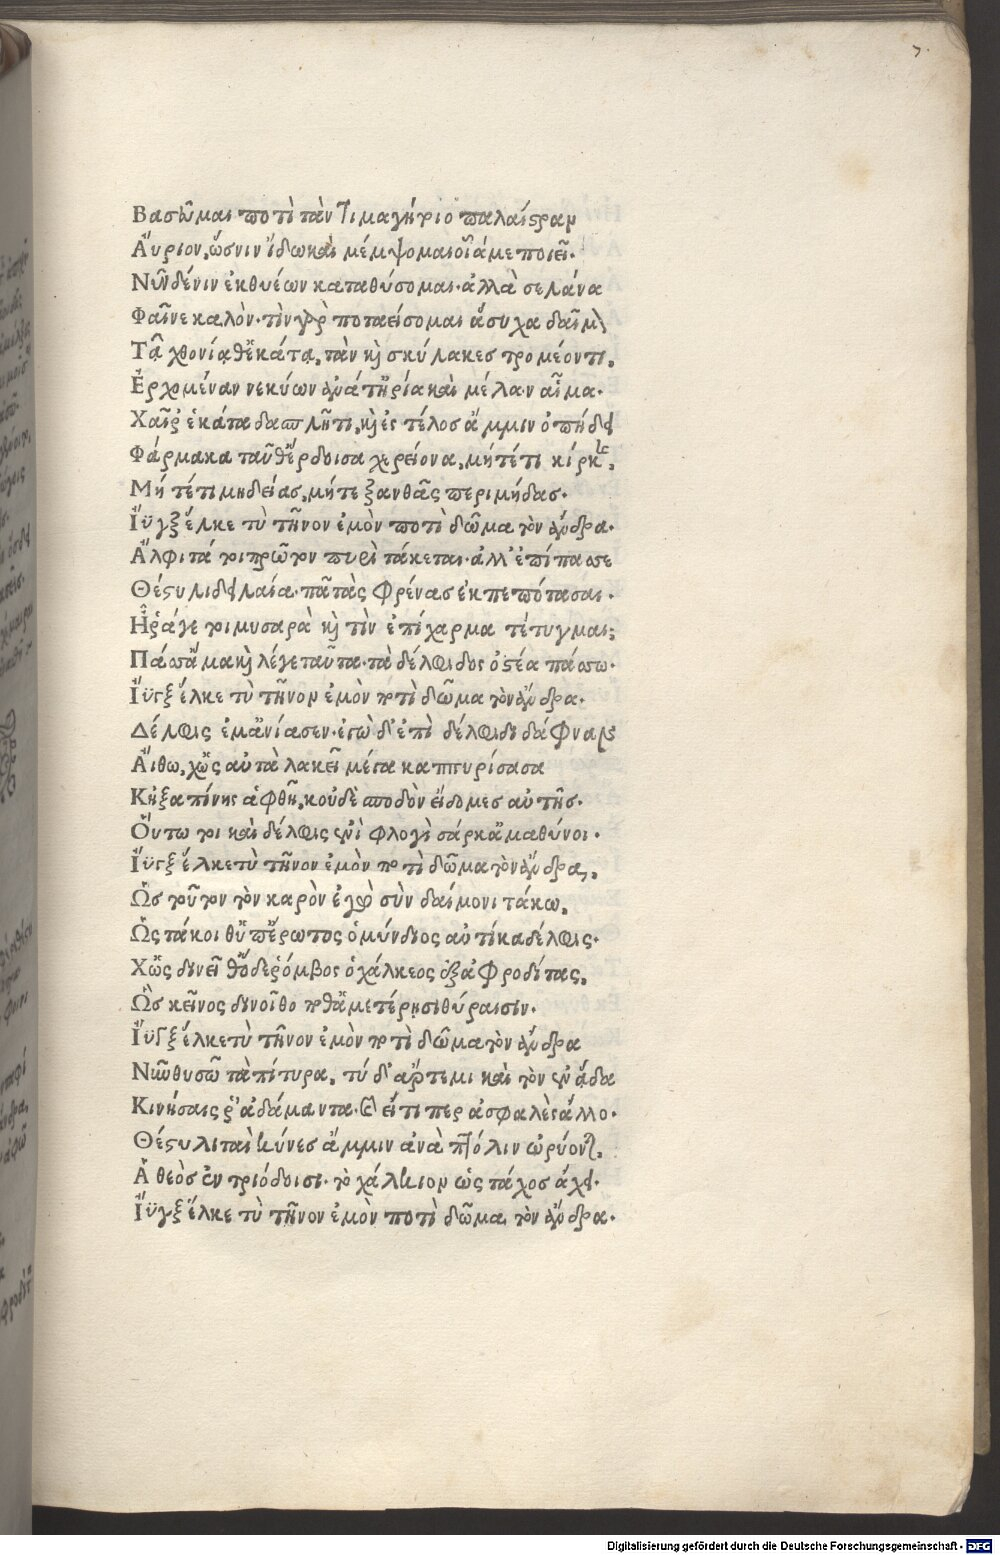 7.
Βασῶμαι ποτὶ τὰν Τιμαγήτιο παλαίστραν
Ἄυριον, ὥσνιν ἴδω καὶ μέμψομαι οἷά με ποιεῖ.
Νῦν δένιν ἐκθυέων καταθύσομαι. ἀλλὰ σελάνα
Φαῖνε καλόν. τὶν γὰρ ποταείσομαι ἅσυχα δαῖμον
Τᾷ χθονίᾳ θἙκάτᾳ, τὰν καὶ σκύλακες τρομέοντι,
Ἐρχομέναν νεκύων ἀνά τ' ἠρία καὶ μέλαν αἷμα.
Χαῖρ' ἑκάτα δασπλῆτι, καὶ ἐς τέλος ἄμμιν ὀπήδει
Φάρμακα ταῦθ' ἕρδοισα χερείονα, μήτέ τι κίρκης,
Μή τέ τι μηδείας, μήτε ξανθᾶς περιμήδας.
Ἴϋγξ ἕλκε τὺ τῆνον ἐμὸν ποτὶ δῶμα τὸν ἄνδρα.
Ἄλφιτά τοι πρῶτον πυρὶ τάκεται. ἀλλ' ἐπίπασσε
Θέστυλι δειλαία. πᾶ τὰς φρένας ἐκπεπότασαι.
Ἦῤά γέ τοι μυσαρὰ καὶ τὶν ἐπίχαρμα τέτυγμαι;
Πάσσ' ἅμα καὶ λέγε ταῦτα. τὰ δέλφιδος ὀστέα πάσσω.
Ἴϋγξ ἕλκε τὺ τῆνον ἐμὸν ποτὶ δῶμα τὸν ἄνδρα.
Δέλφις ἔμ' ἀνίασεν. ἐγὼ δ' ἐπὶ δέλφιδι δάφναν
Ἄιθω, χὥς αὐτὰ λακεῖ μέγα καππυρίσασα
Κἠξαπίνης ἁφθῆ, κοὐδὲ σποδὸν εἴδομες αὐτῆς.
Ὅυτω τοι καὶ δέλφις ἐνὶ φλογὶ σάρκ' ἀμαθύνοι.
Ἴϋγξ ἕλκε τὺ τῆνον ἐμὸν ποτὶ δῶμα τὸν ἄνδρα,
Ὡς τοῦτον τὸν καρὸν ἐγὼ σὺν δαίμονι τάκω,
Ὣς τάκοι θ' ὑπ' ἔρωτος ὁ μύνδιος αὐτίκα δέλφις.
Χὥς δινεῖ θ' ὅδε ῥόμβος ὁ χάλκεος ἐξ ἀφροδίτας,
Ὣς κεῖνος δινοῖθο ποθ' ἁμετέρῃσι θύραισιν.
Ἴϋγξ ἕλκε τὺ τῆνον ἐμὸν ποτὶ δῶμα τὸν ἄνδρα
Νῦν θυσῶ τὰ πίτυρα, τύ δ' ἄρτεμι καὶ τὸν ἐν ᾅδα
Κινήσαις ῥ' ἀδάμαντα. καὶ εἴ τι περ ἀσφαλὲς ἄλλο.
Θέστυλι ταὶ κύνες ἄμμιν ἀνὰ πτόλιν ὠρύονται,
Ἁ θεὸς ἐν τριόδοισι. τὸ χάλκιον ὡς τάχος ἄχει.
Ἴϋγξ ἕλκε τὺ τῆνον ἐμὸν ποτὶ δῶμα τὸν ἄνδρα.
Digitalisierung gefördert durch die Deutsche Forschungsgemeinschaft - DFG